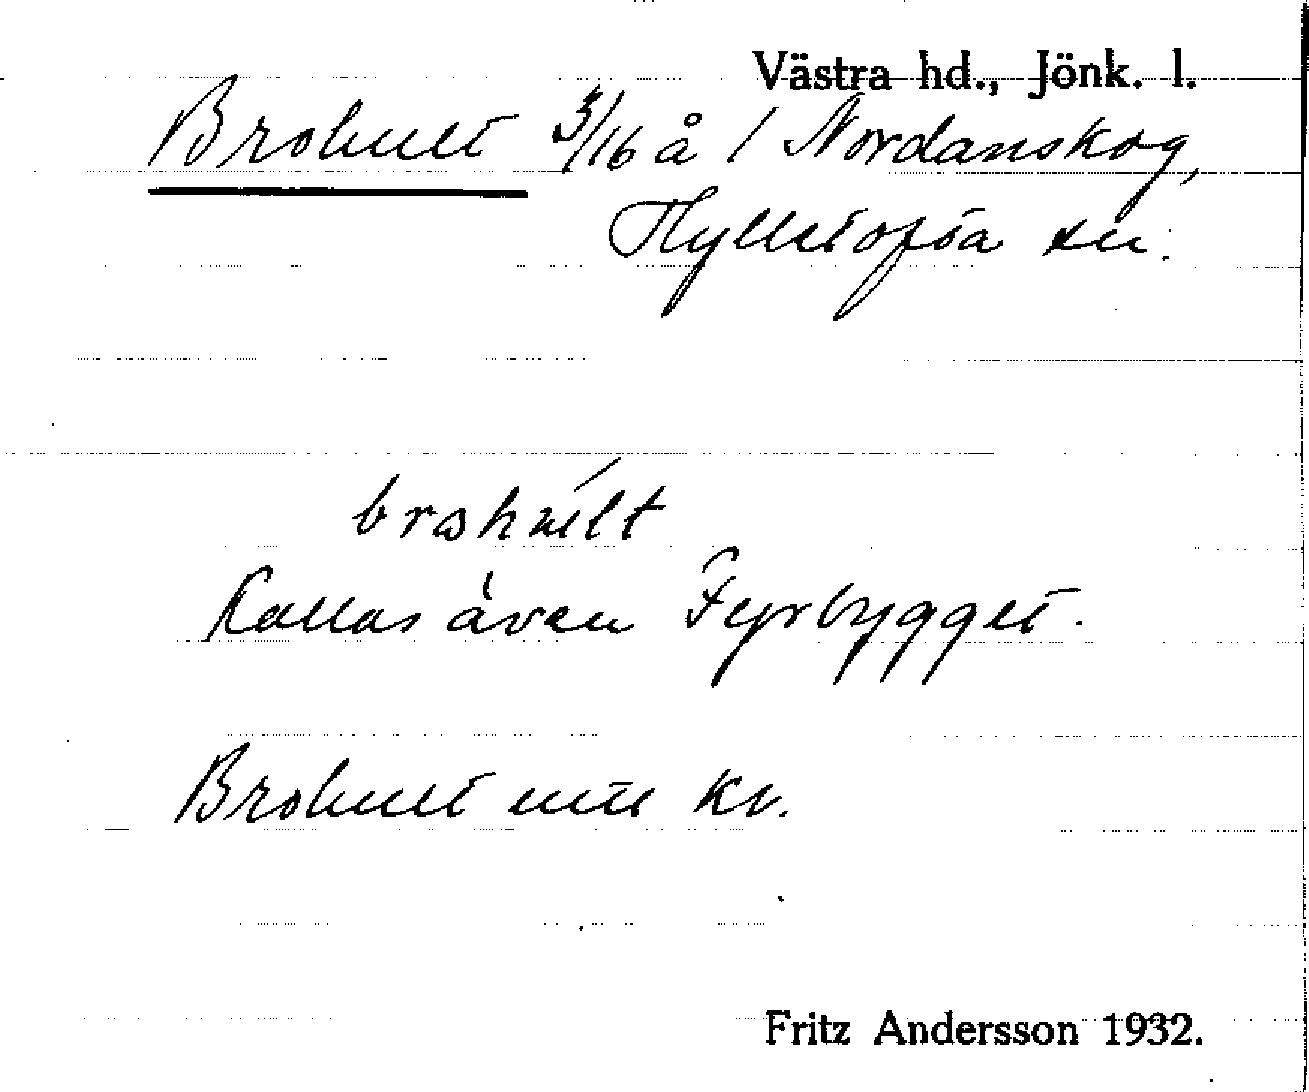 Västra hd., Jönk. l.
Brohult 3/16 å 1 Nordanskog,
Hylletofta sn.
brohult
Kallas även Fyrbygget.
Brohult kv.
Fritz Andersson 1932.